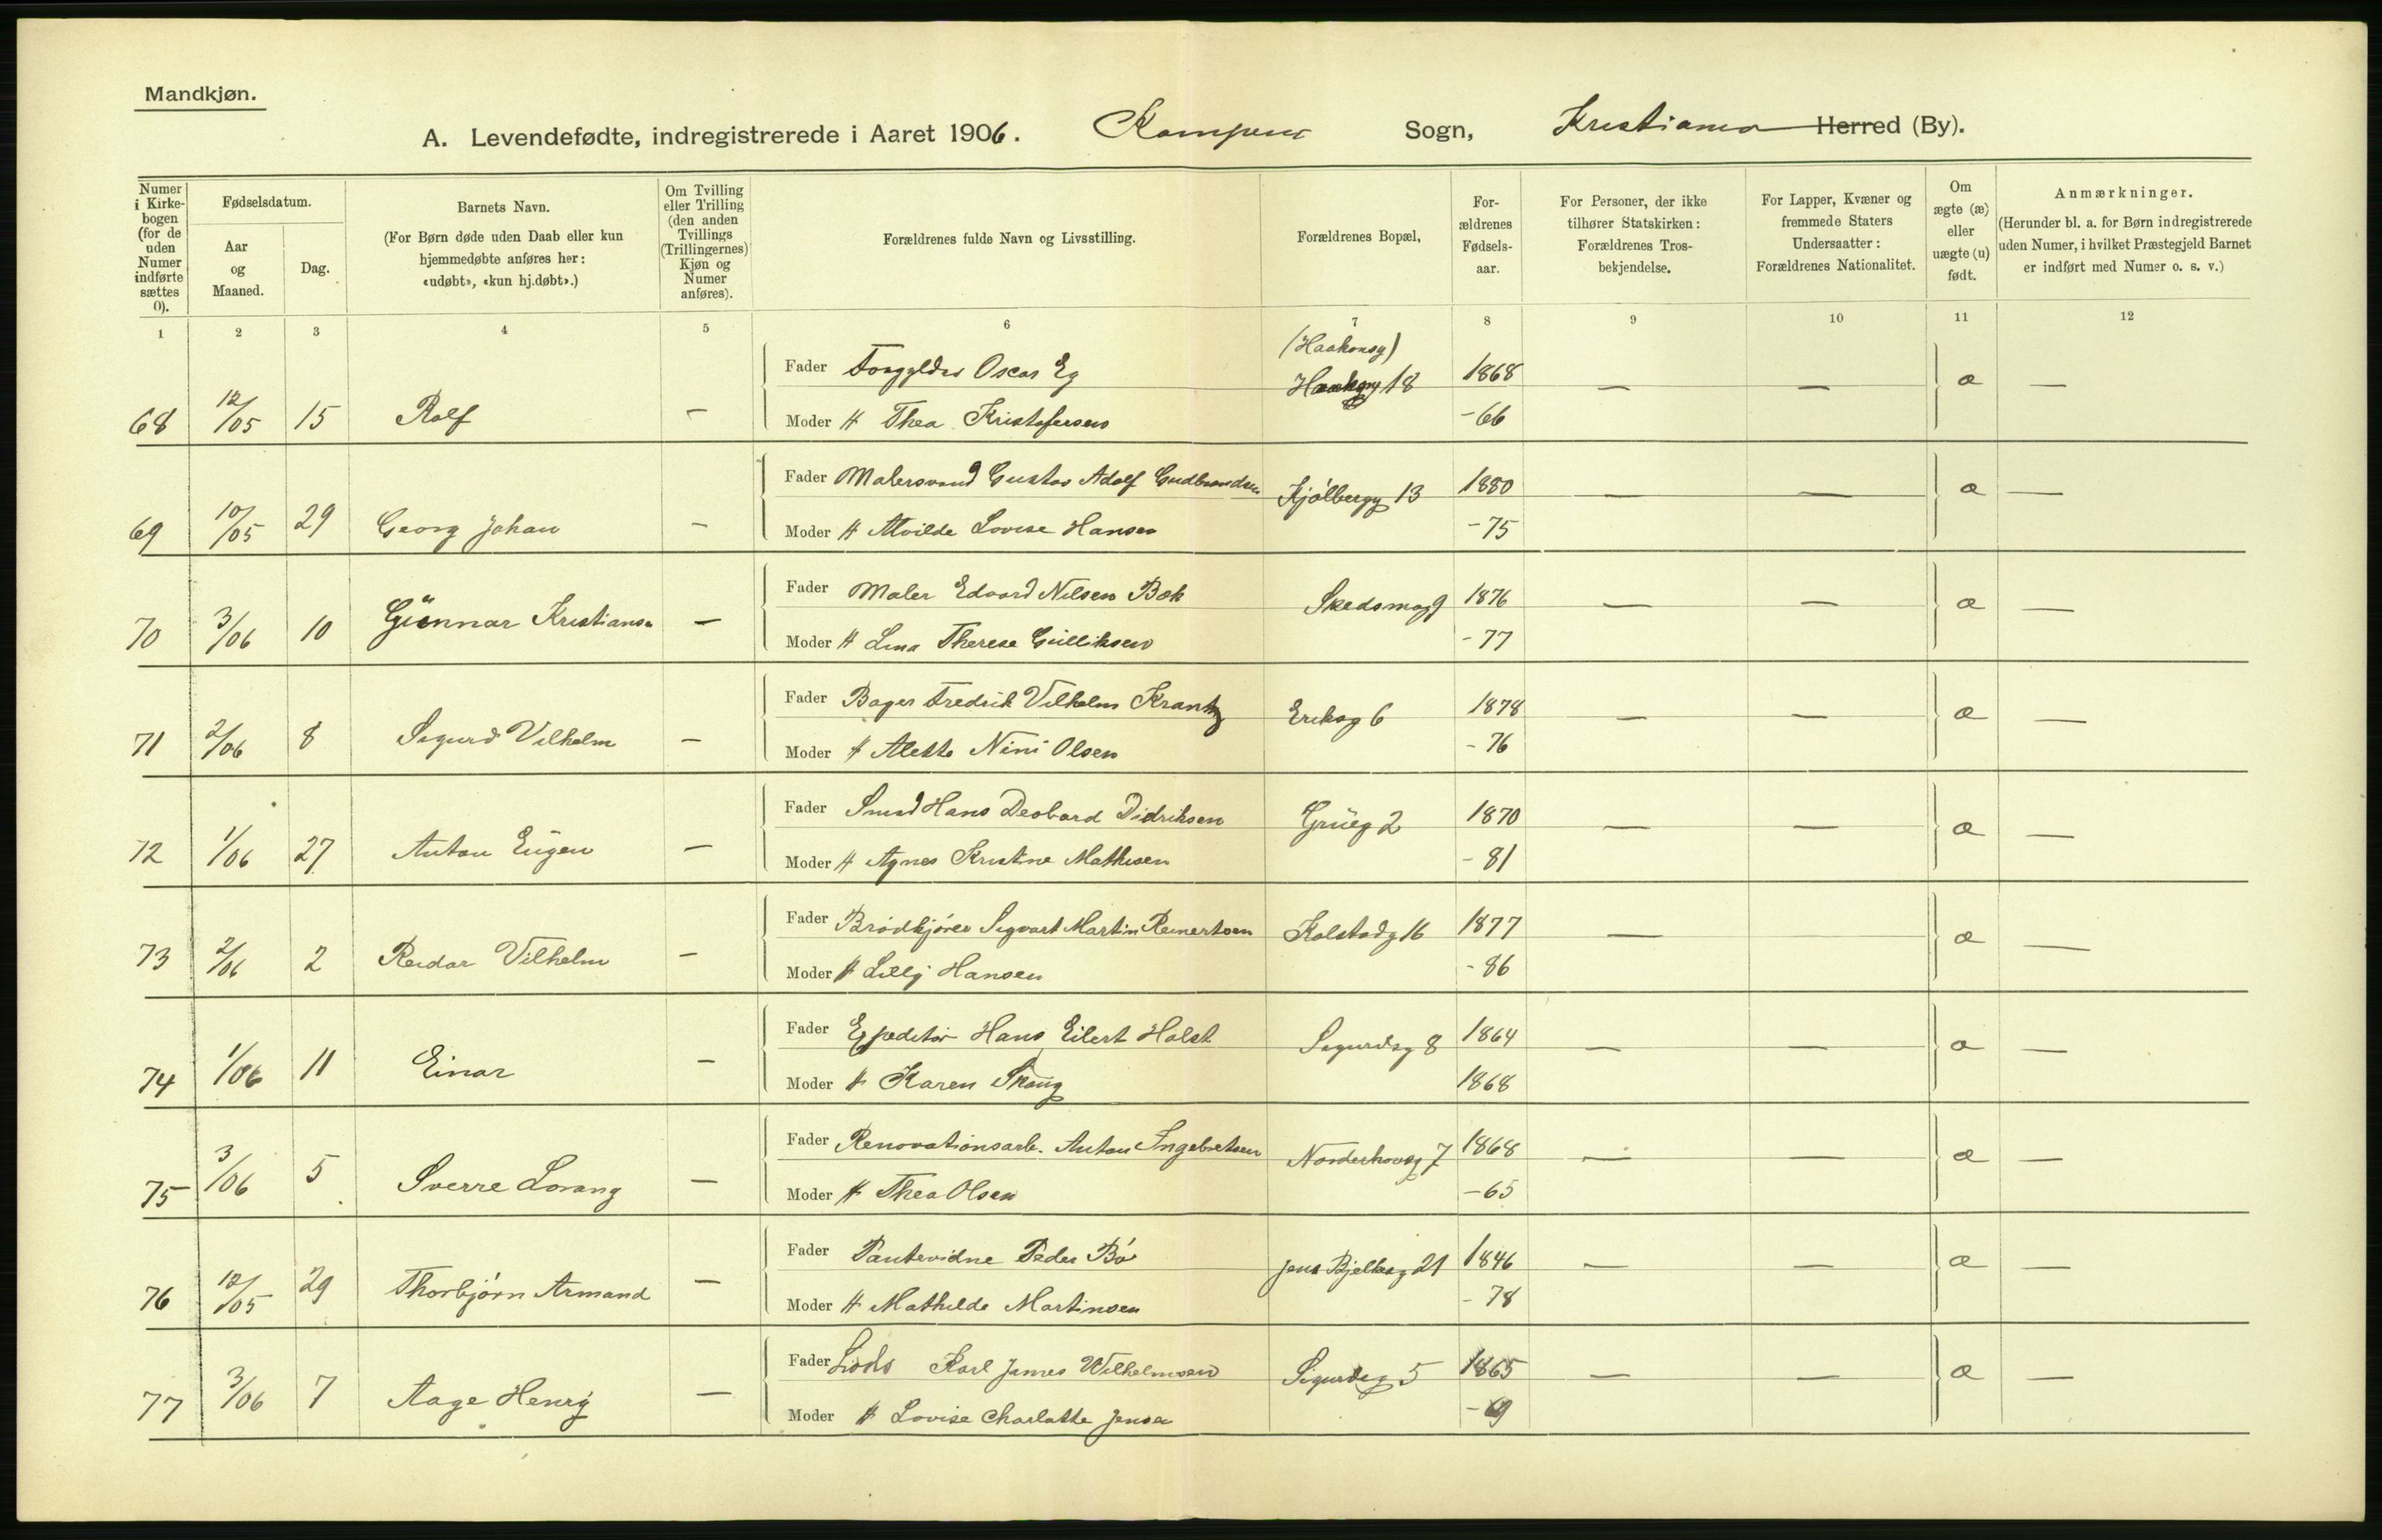 Mandkjøn.
A. Levendefødte, indregistrerede i Aaret 1906. Kampens Sogn, Kristiania Herred (By).
Numer i Kirke-bogen (for de uden Numer indførte sættes 0).
Fødselsdatum.
Aar og Maaned.
Dag.
Barnets Navn.
(For Børn døde uden Daab eller kun hjemmedøbte anføres her: «udøbt», «kun hj.døbt».)
Om Tvilling eller Trilling (den anden Tvillings (Trillingernes) Kjøn og Numer anføres).
Forældrenes fulde Navn og Livsstilling.
Forældrenes Bopæl,
For-ældrenes Fødsels-aar.
For Personer, der ikke tilhører Statskirken: Forældrenes Tros-bekjendelse.
For Lapper, Kvæner og fremmede Staters Undersaatter: Forældrenes Nationalitet.
Om ægte (æ) eller uægte (u) født.
Anmærkninger.
(Herunder bl. a. for Børn indregistrerede uden Numer, i hvilket Præstegjeld Barnet er indført med Numer o. s. v.)
1 2 3 4 5 6 7 8 9 10 11 12
Fader Forgylder Oscar Eg (Haakonsg) 18 1868 — — æ —
68 12/05 15 Rolf — Moder H Thea Kristofersen -66
Fader Malersvend Gustav Adolf Gudbrandsen Kjølbergg 13 1880 — — æ —
69 10/05 29 Georg Johan — Moder H Alvilde Lovise Hansen -75
Fader Maler Edvard Nilsen Bæk Skedsmog 9 1876 — — æ —
70 3/06 10 Gunnar Kristiansn — Moder H Lina Therese Gulliksen -77
Fader Bager Fredrik Vilhelm Krantz Eriksg 6 1878 — — æ —
71 2/06 8 Sigurd Vilhelm — Moder H Alette Nini Olsen -76
Fader Smed Hans Deobard Didriksen Grüeg 2 1870 — — æ —
72 1/06 27 Anton Eugen — Moder H Agnes Kristine Mathisen -81
Fader Brødkjører Sigvart Martin Reinertsen Kolstadg 16 1877 — æ —
73 2/06 2 Reidar Vilhelm — Moder H Lilly Hansen -86
Fader Expeditør Hans Eilert Holst Sigurdsg 8 1864 — — æ —
74 1/06 11 Einar — Moder H Karen Skaug 1868
Fader Renovationsarb. Anton Ingebretsen Norderhovsg 7 1868 — — æ —
75 3/06 5 Sverre Lorang — Moder H Thea Olsen -65
Fader Pantevidne Peder Bø Jens Bjelkesg 21 1846 — — æ —
76 12/05 29 Thorbjørn Armand — Moder H Mathilde Martinsen -78
Fader Lods Karl James Wilhelmsen Sigurdsg 5 1865 — — æ —
77 3/06 7 Aage Henry — Moder H Lovise Charlotte Jensen -69